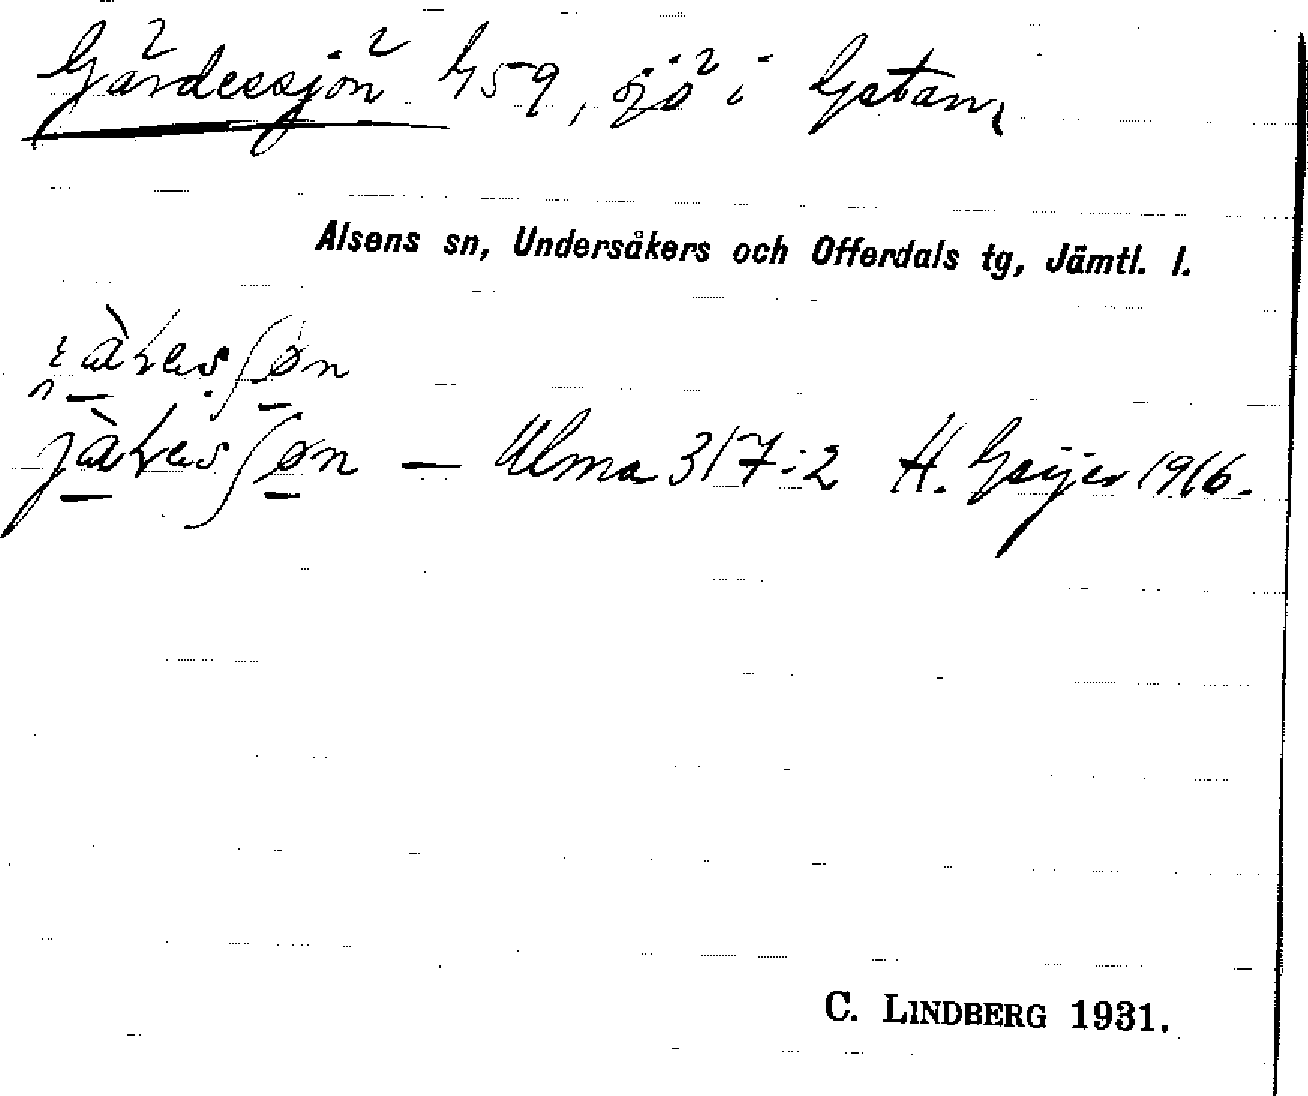 Gärdessjön G59, sjö i Gstam,
Alsens sn, Undersåkers och Offerdals tg, Jämtl. l.
— Ulma 317:2 H. Geijer 1916.
C. LINDBERG 1931.